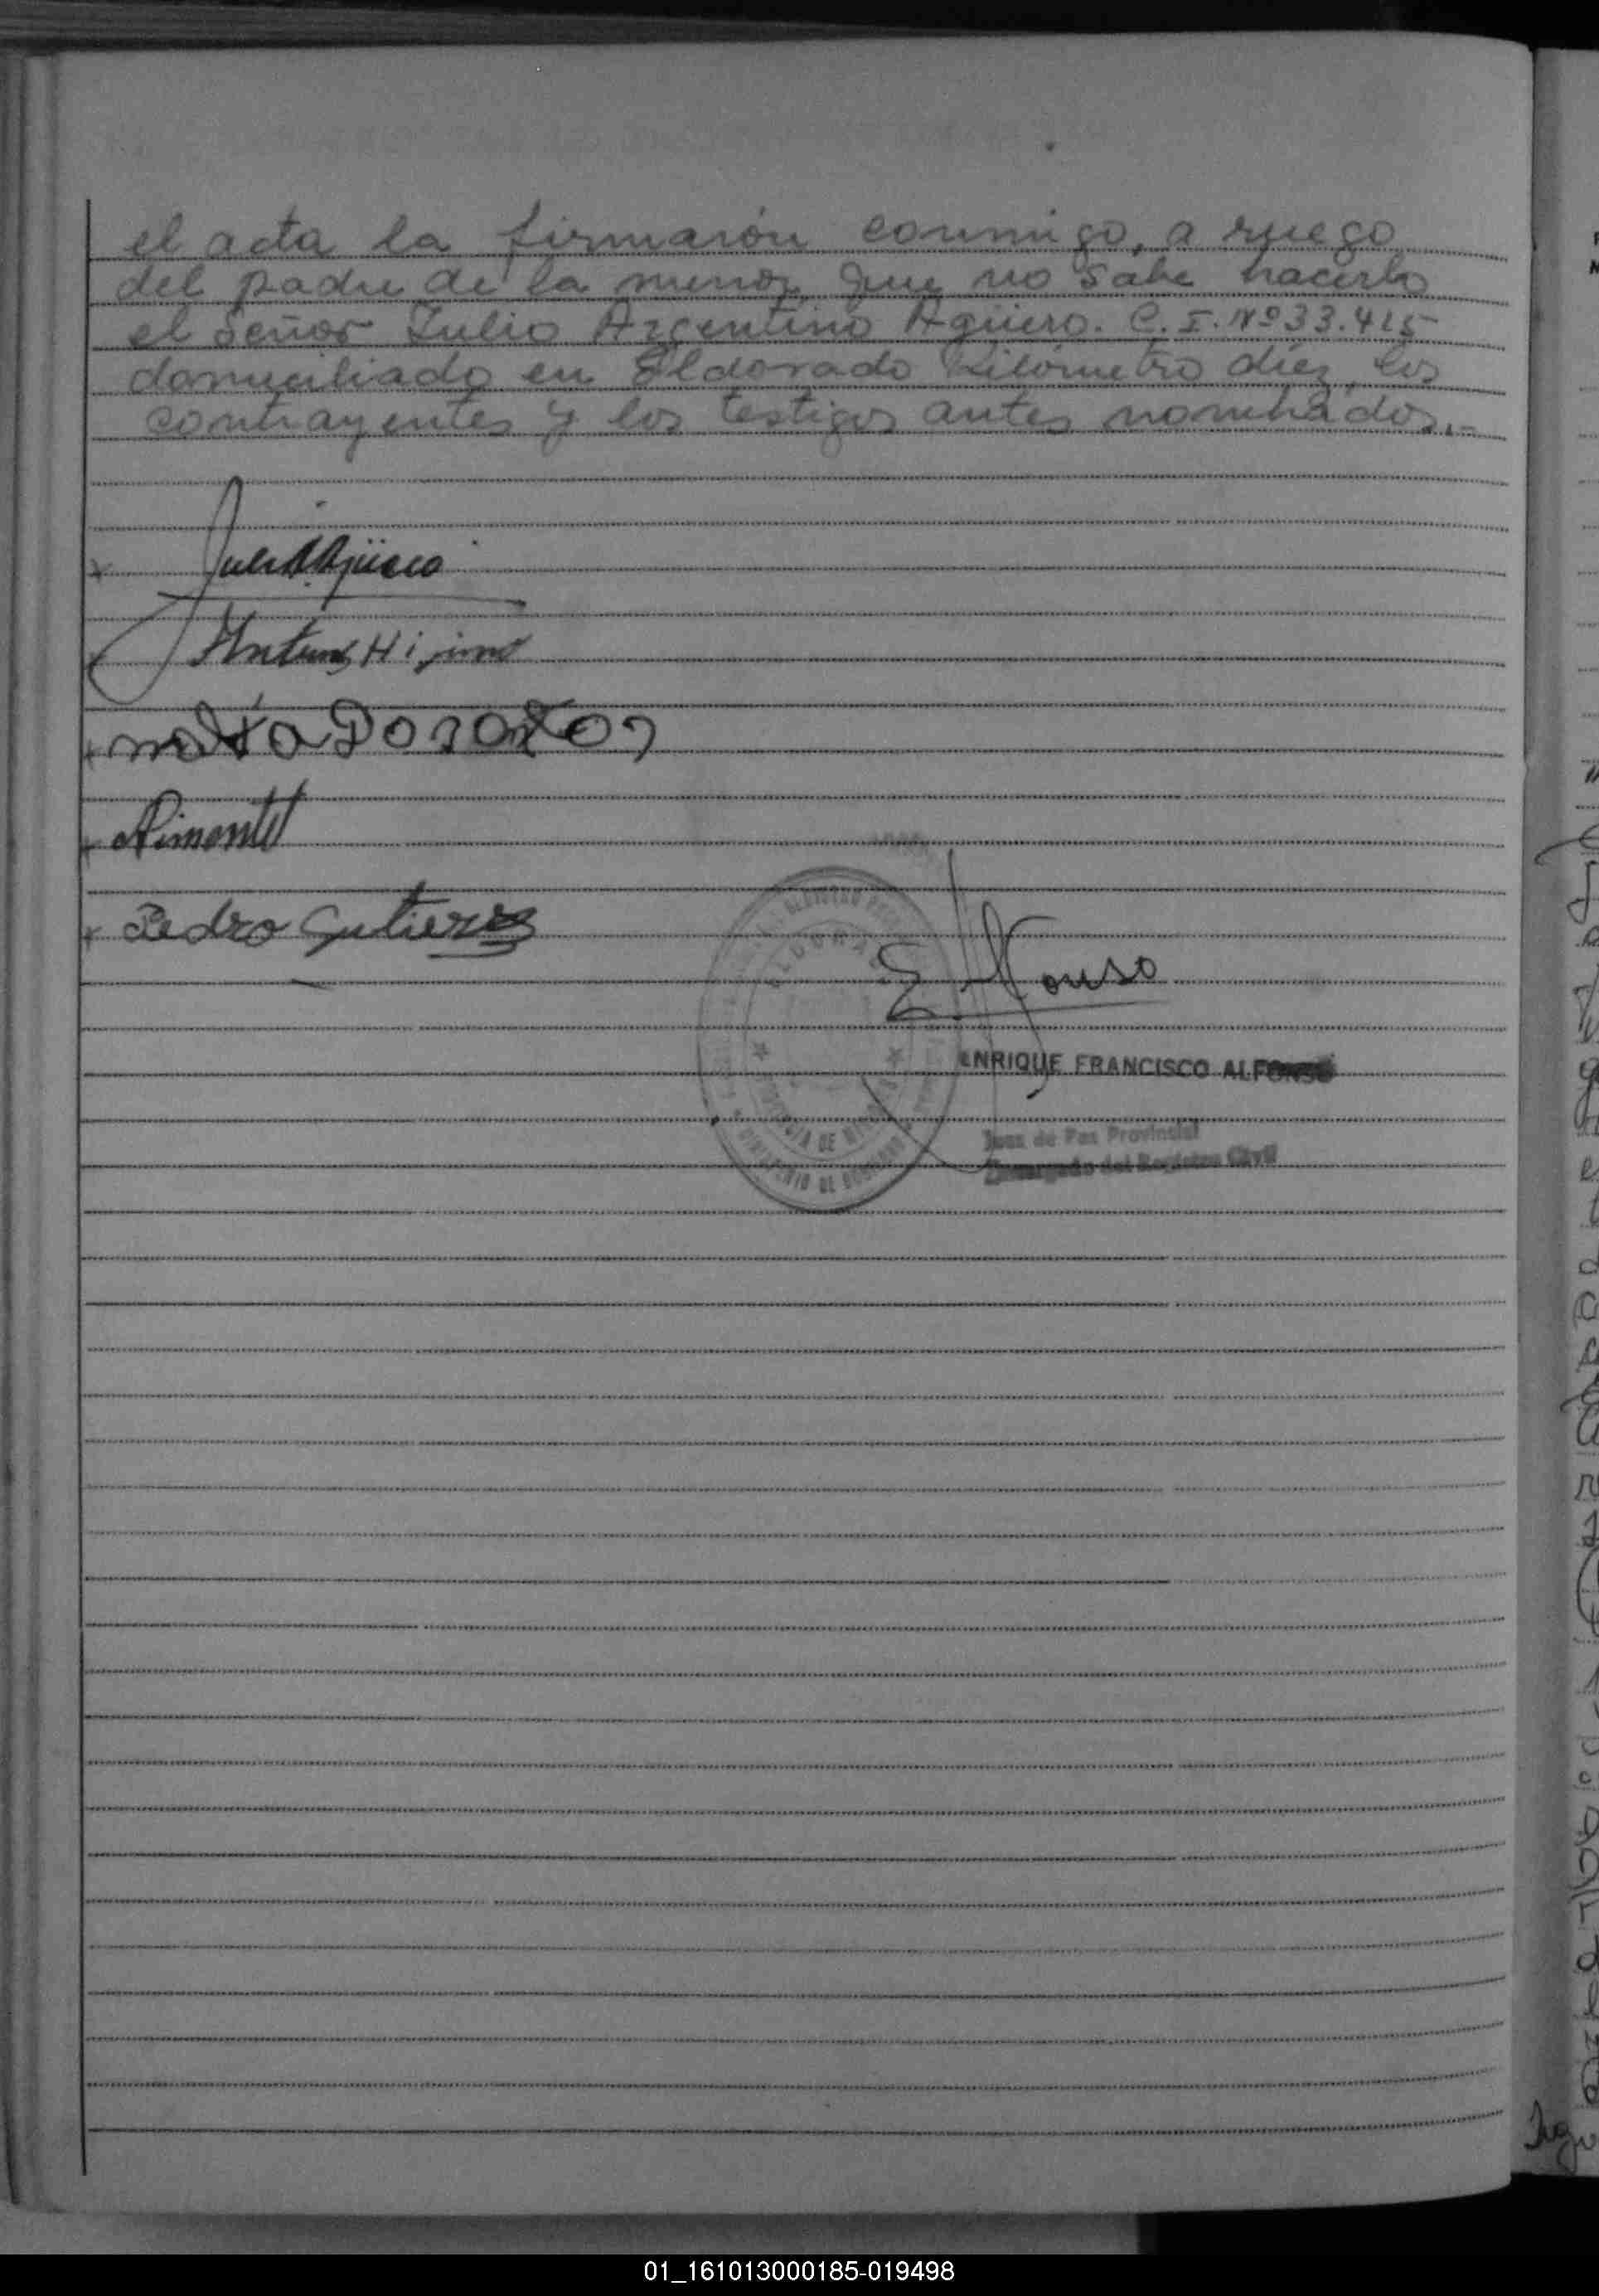 el acta la firmarón conmigo, a ruego
del padre de la menor, que no sabe hacerlo
el Señor Julio Argentino Agüero. C.I. Nº 33.415
domiciliado en Eldorado Kilómetro diez, los
contrayentes y los testigos antes nombrados.-
Julio A Agüero
Antunez Higinio
Dos Santos
Pimentel
Pedro Gutierez
E Alfonso
ENRIQUE FRANCISCO ALFONSO
Juez de Paz Provincial
Encargado del Registro Civil
ELDORADO
PROVINCIA DE MISIONES
MINISTERIO DE GOBIERNO
01_161013000185-019498